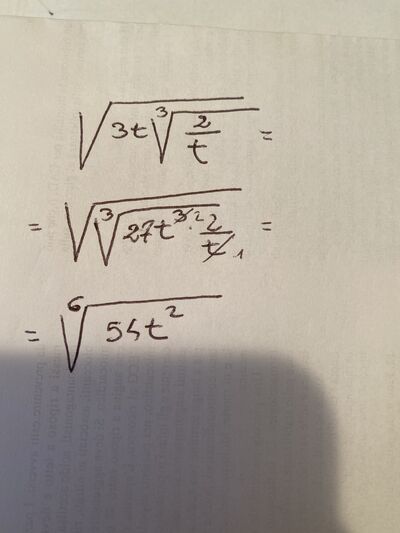 √(3t ∛(2/t)) =
= √(∛(27t^3̸ ² · 2/t̸ ₁)) =
= ⁶√(54t²)